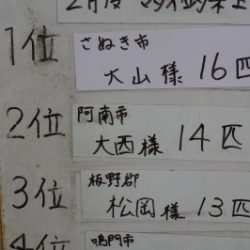 1位 さぬき市
大山様 16匹
2位 阿南市
大西様 14匹
3位 板野郡
松岡様 13匹
4位 鳴門市